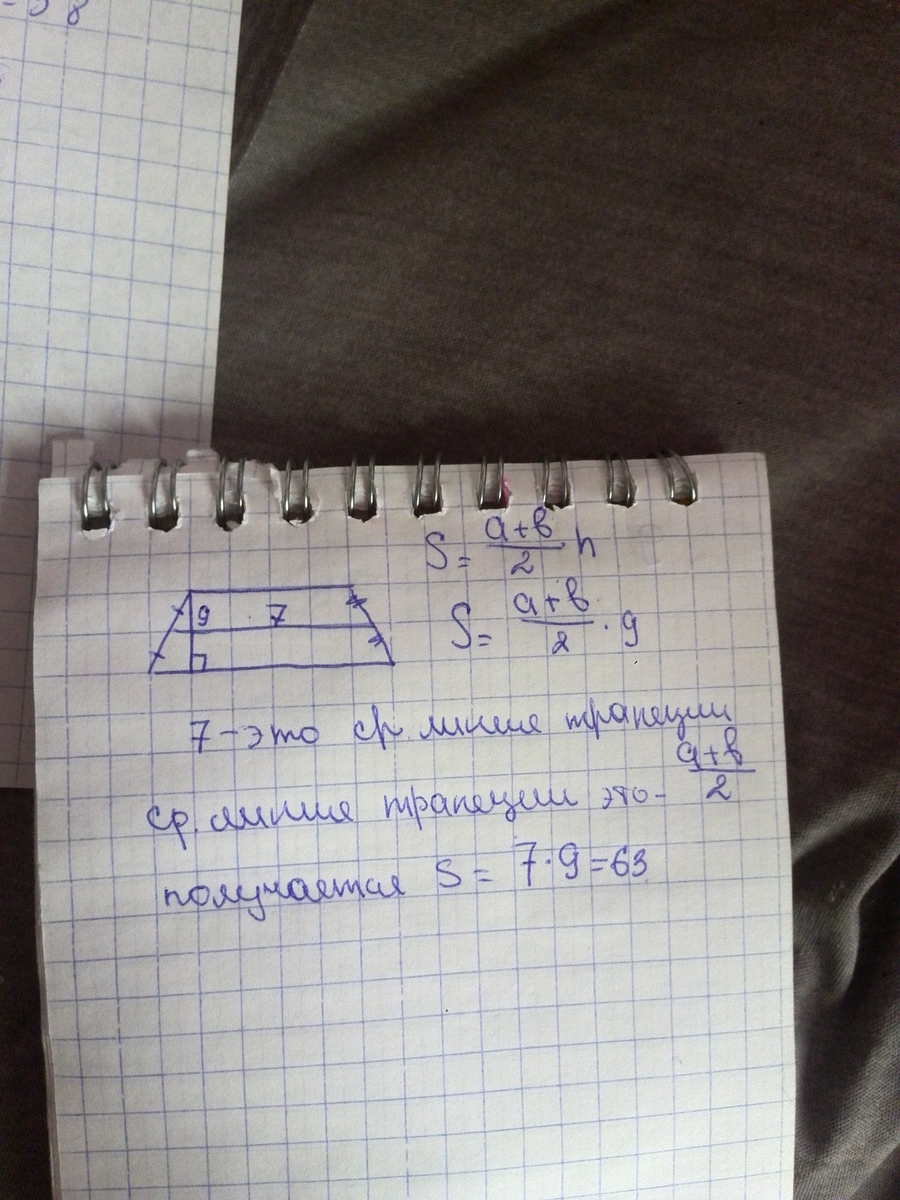 S = a+b/2 h
9 7
S = a+b/2 · 9
7 - это ср. линия трапеции
ср. линия трапеции это - a+b/2
получается S = 7·9=63